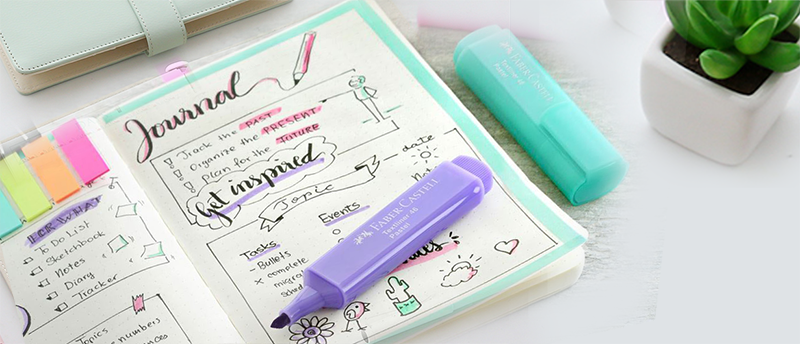 FOR WHAT
To Do List
Sketchbook
Notes
Diary
Tracker
Topics
numbers
Journal
Track the PAST
Organize the PRESENT
Plan for the FUTURE
Get inspired
Topic
date
Tasks
- Bullets
x complete
Events
FABER-CASTELL
Textliner 46
Pastel
FABER-CASTELL
Textliner 46
Pastel